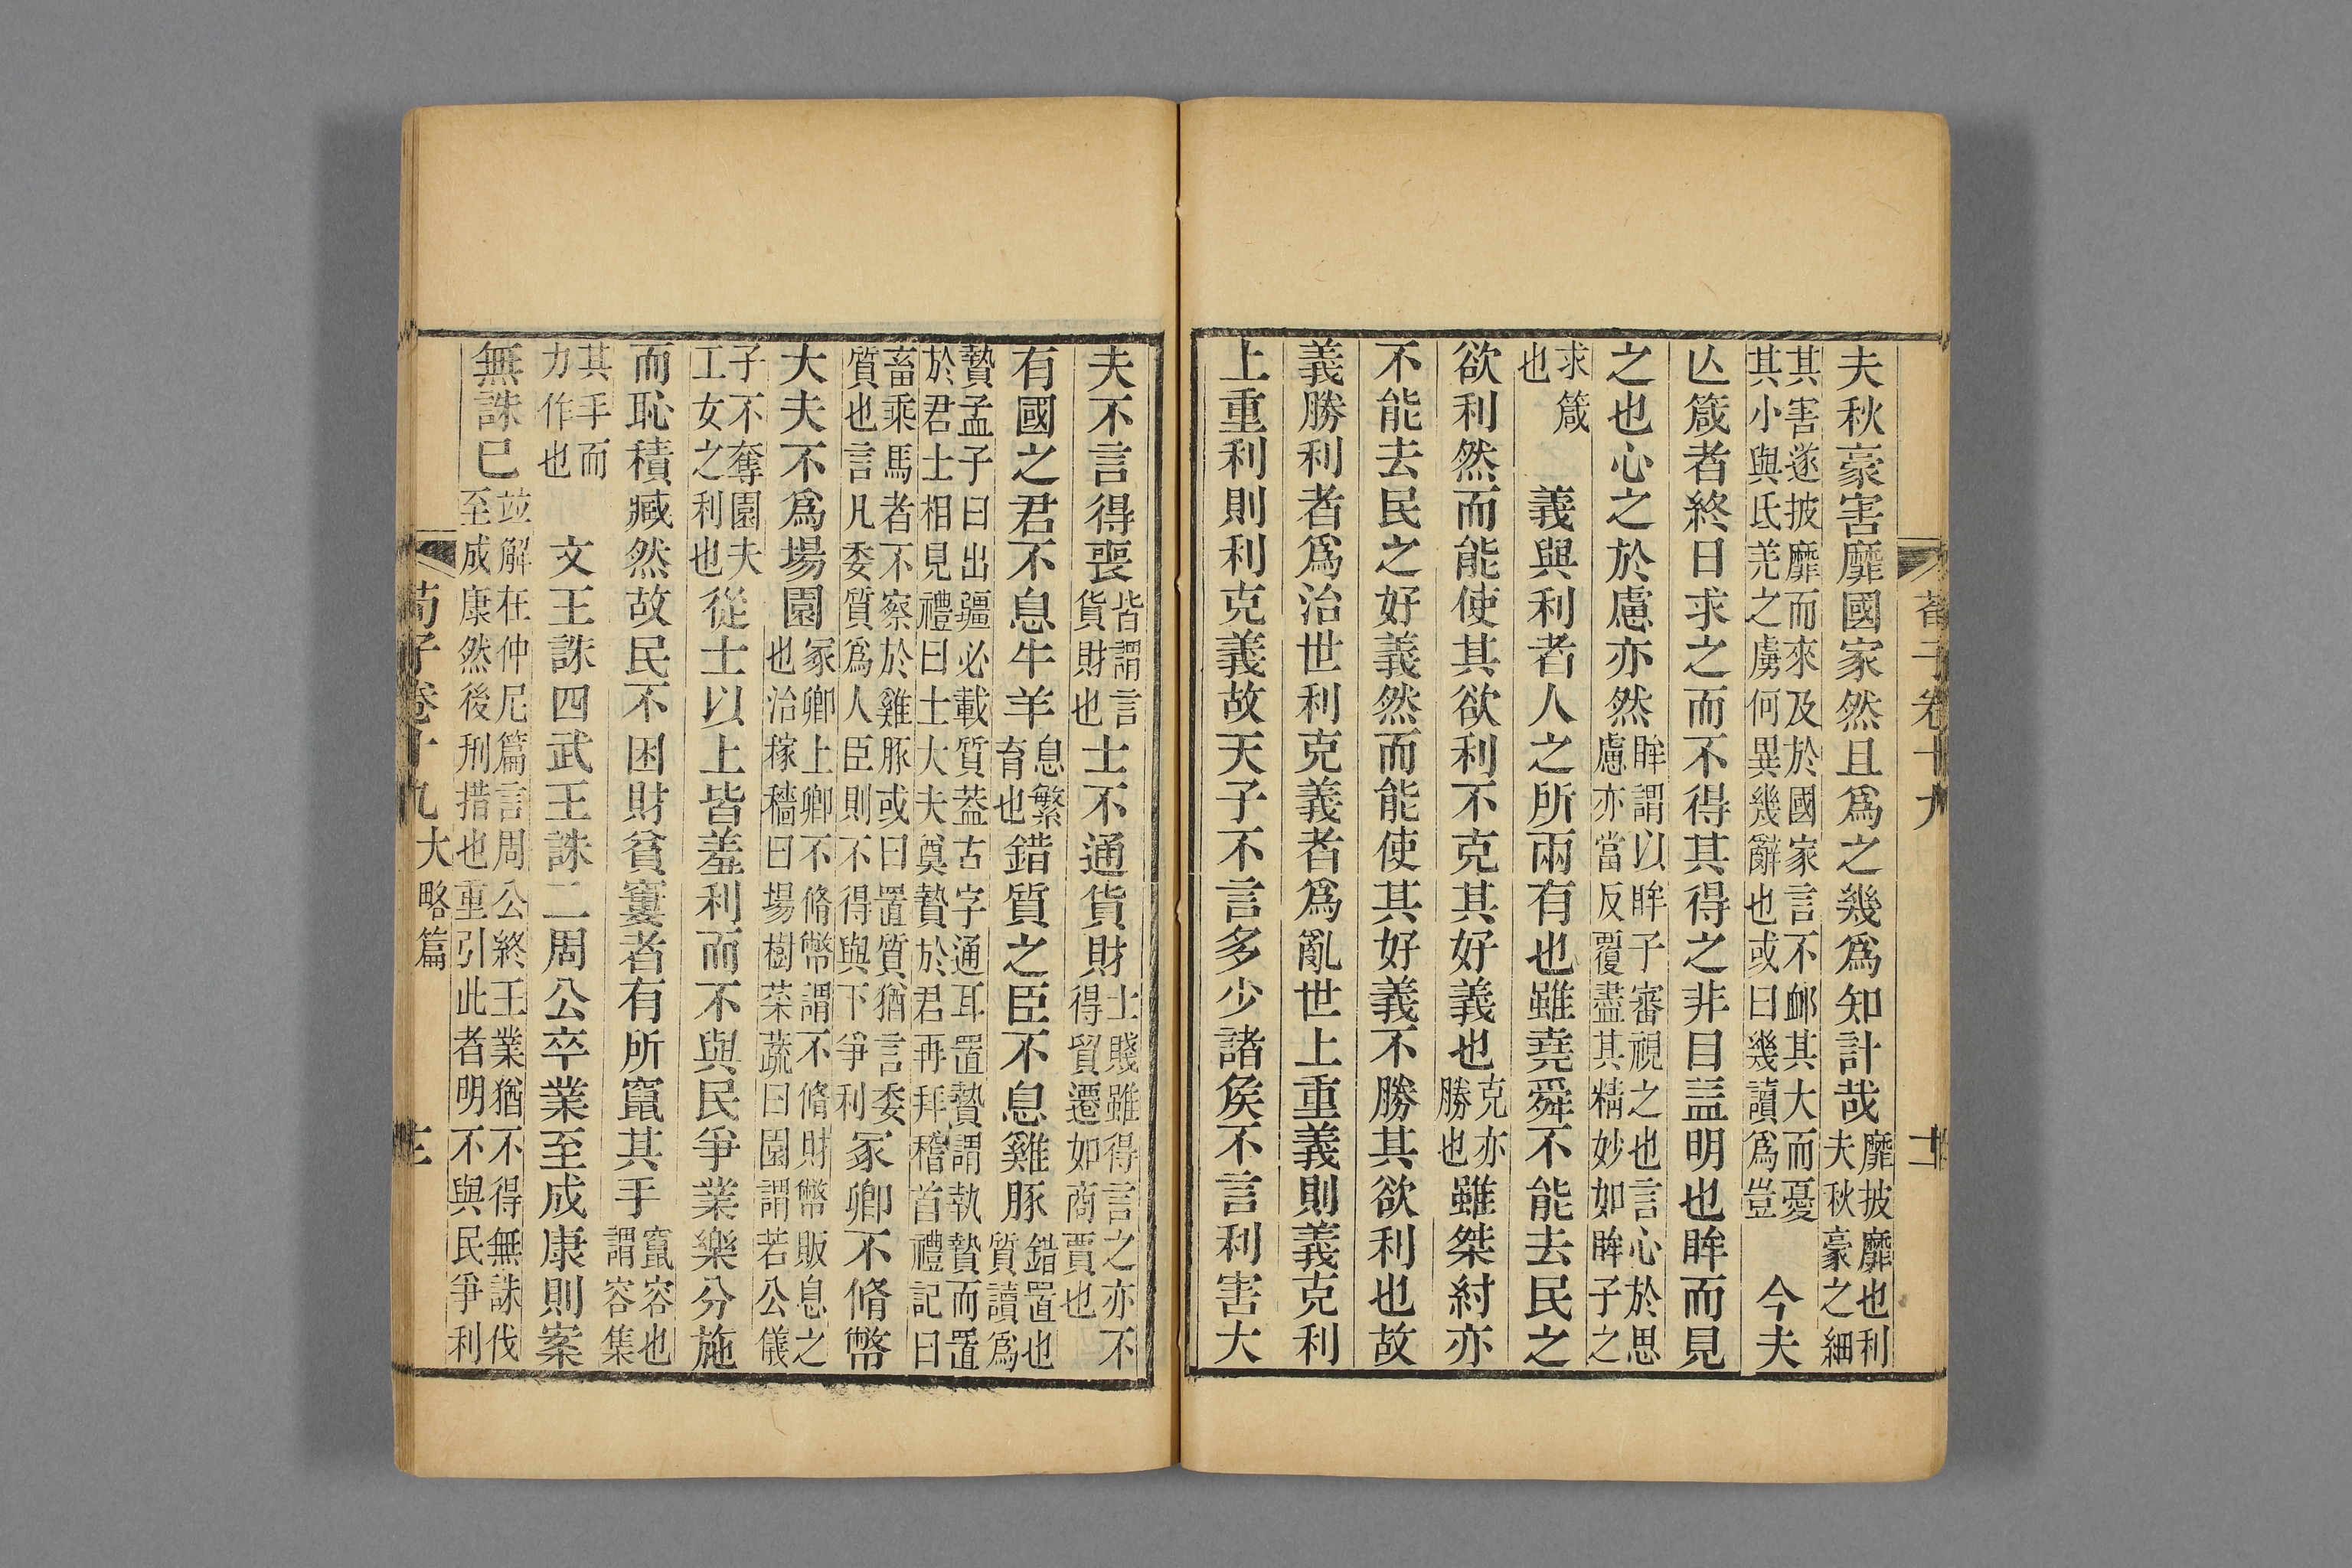 夫秋豪害靡國家然且爲之幾爲知計哉靡披靡也利夫秋豪之細
其害遂披靡而來及於國家言不䘏其大而憂其小與氐羌之虜何異幾辭也或曰幾讀爲豈今夫
亾箴者終日求之而不得其得之非目益明也眸而見
之也心之於慮亦然眸謂以眸子審視之也言心於思慮亦當反覆盡其精妙如眸子之
求箴也義與利者人之所兩有也雖堯舜不能去民之
欲利然而能使其欲利不克其好義也克亦勝也雖桀紂亦
不能去民之好義然而能使其好義不勝其欲利也故
義勝利者爲治世利克義者爲亂世上重義則義克利
上重利則利克義故天子不言多少諸矦不言利害大
夫不言得喪皆謂言貨財也士不通貨財士賤雖得言之亦不得貿遷如商賈也
有國之君不息牛羊息繁育也錯質之臣不息雞豚錯置也質讀爲
贄孟子曰出疆必載質葢古字通耳置贄謂執贄而置於君士相見禮曰士大夫奠贄於君再拜稽首禮記曰
畜乘馬者不察於雞豚或曰置質猶言委質也言凡委質爲人臣則不得與下爭利冢卿不脩幣
大夫不爲場園冢卿上卿不脩幣謂不脩財幣販息之也治稼穡曰場樹菜蔬曰園謂若公儀
子不奪園夫工女之利也從士以上皆羞利而不與民爭業樂分施
而恥積臧然故民不困財貧窶者有所竄其手竄容也謂容集
其手而力作也文王誅四武王誅二周公卒業至成康則案
無誅巳竝解在仲尼篇言周公終王業猶不得無誅伐至成康然後刑措也重引此者明不與民爭利
荀子卷十九大略篇